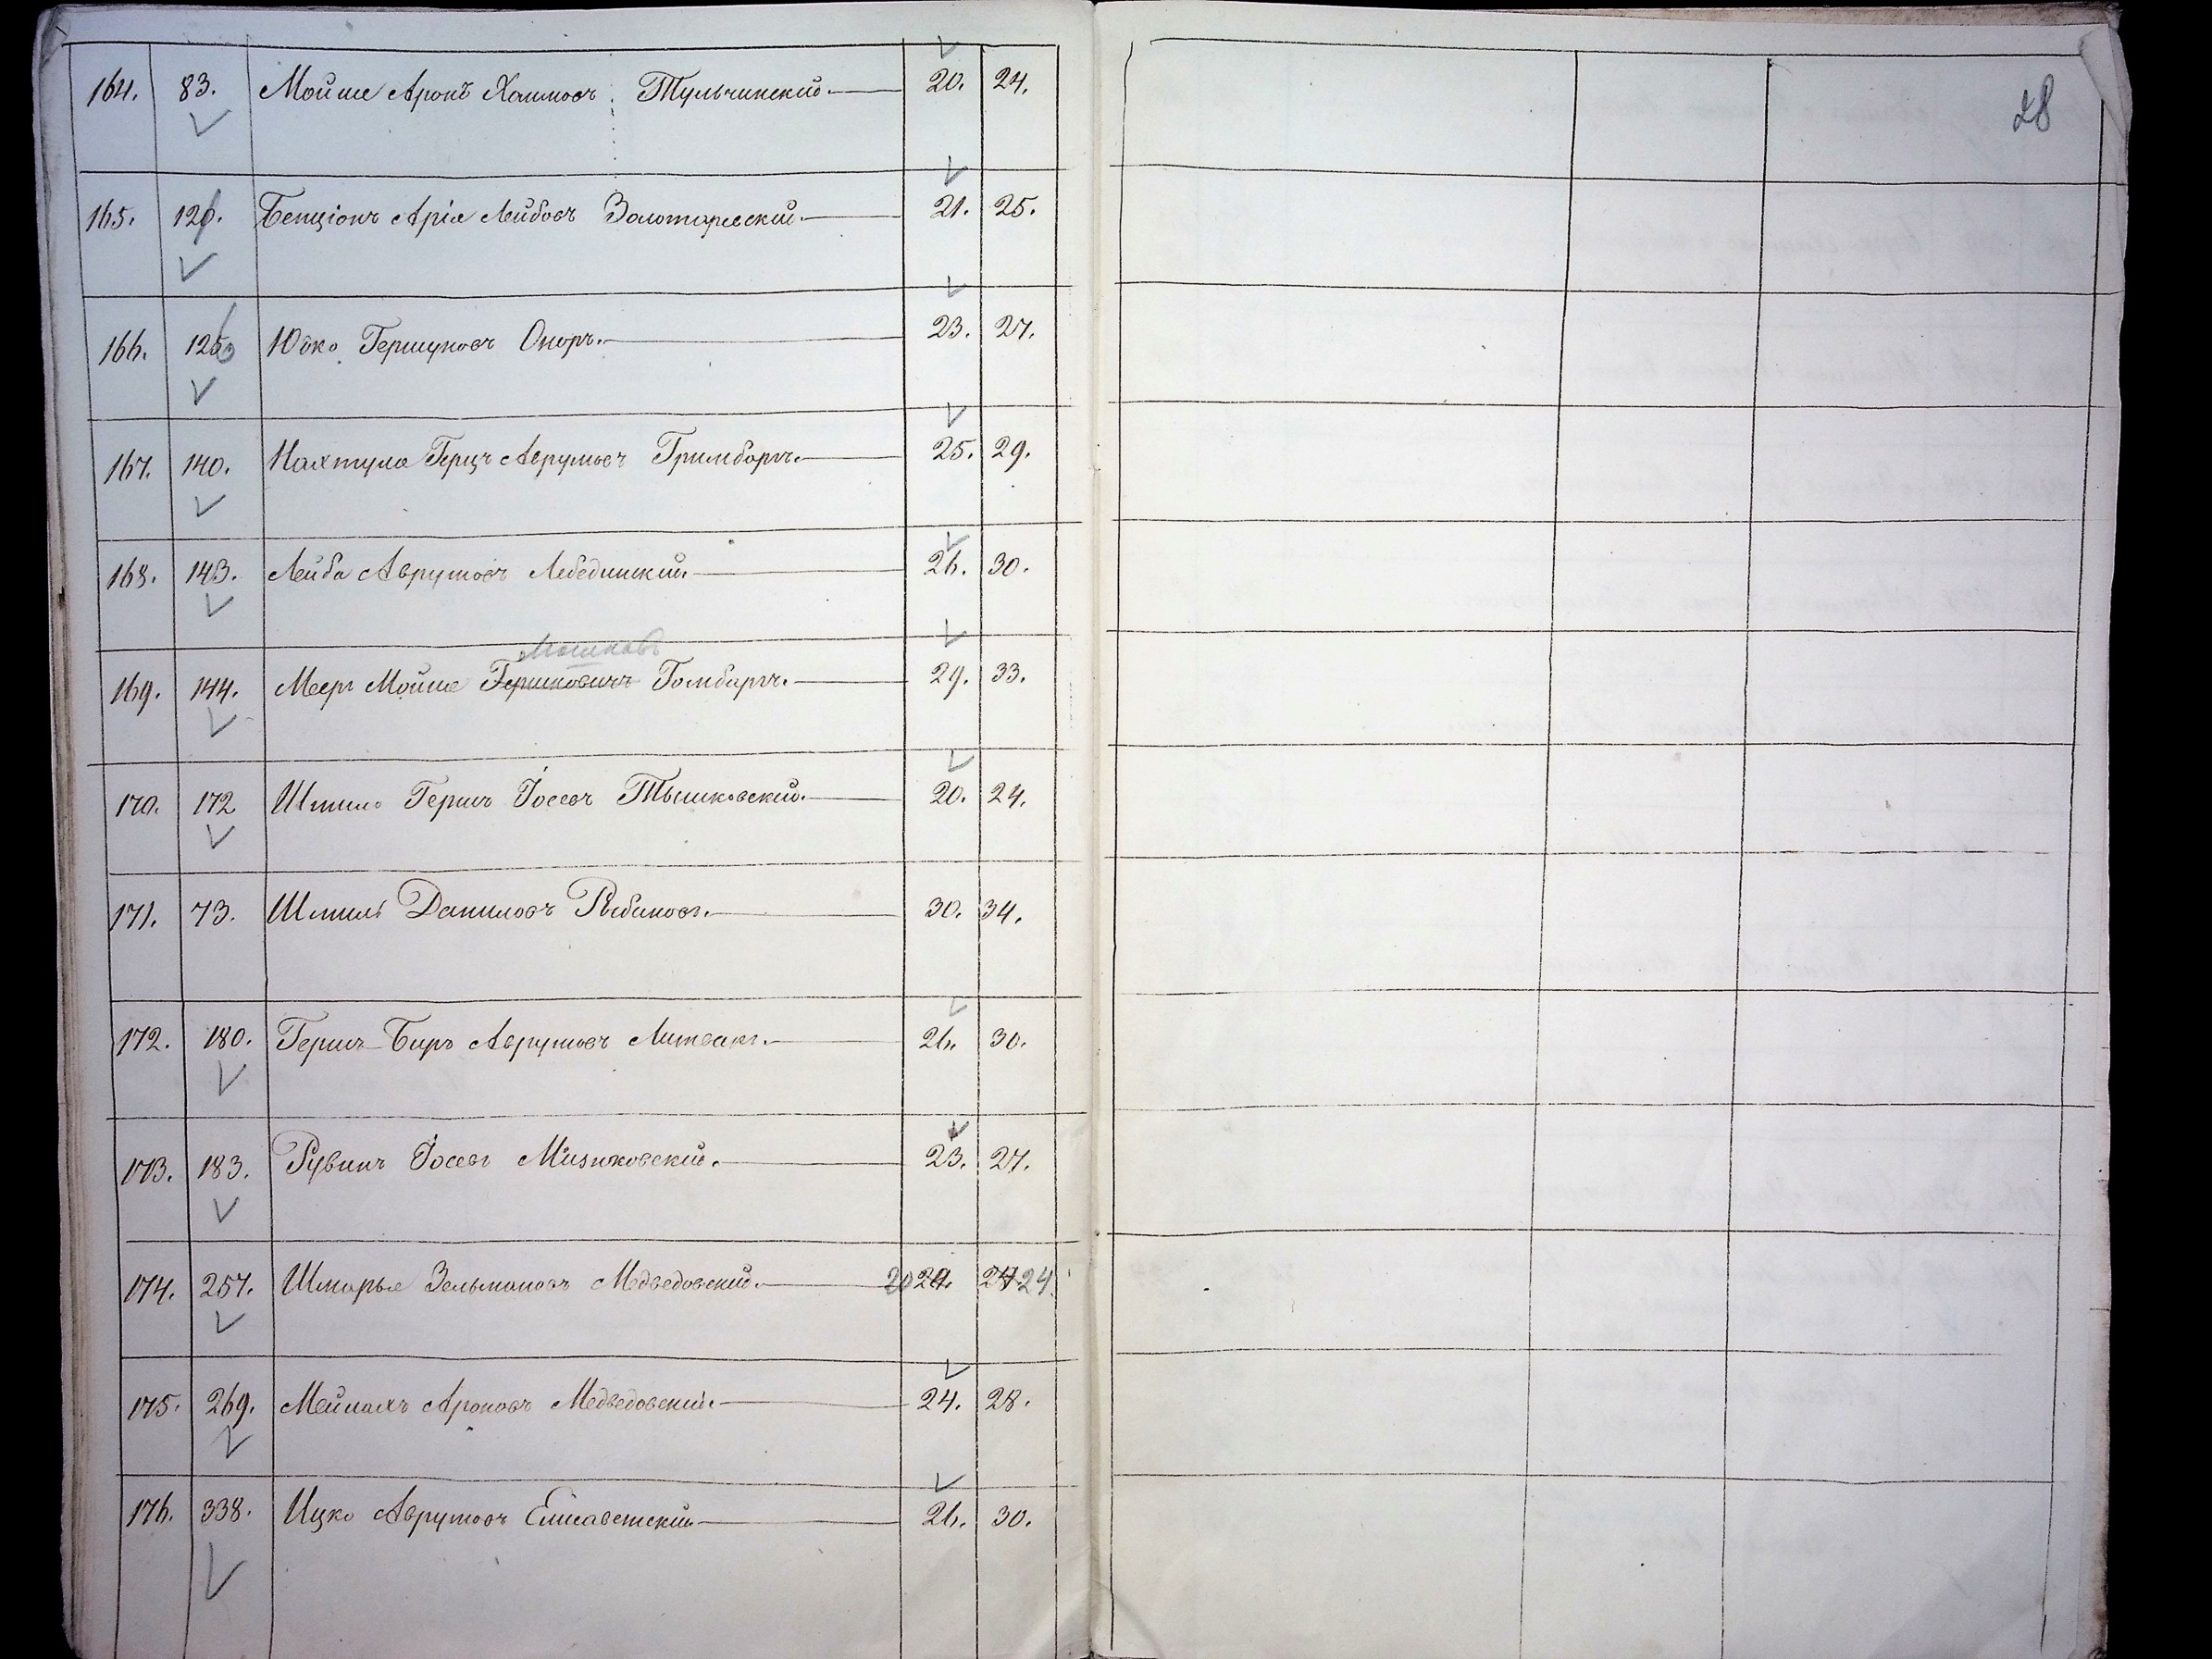 28
164. 83. Мойше Аронъ Хаимовъ Тульчинский. 20. 24.
165. 120. Бенціонъ Арія Лейбовъ Золотаревский. 21. 25.
166. 125. Юдко Гершуновъ Оноръ. 23. 27.
167. 140. Нахтула Герцъ Аврумовъ Гримбергъ. 25. 29.
168. 143. Лейба Аврумовъ Лебединский. 26. 30.
Мошковъ
169. 144. Меер Мойше Гершковичъ Гомбергъ. 29. 33.
170. 172 Шмило Гершъ Іосевъ Тышковский. 20. 24.
171. 73. Шмиль Даниловъ Рабиновъ. 30. 34.
172. 180. Гершъ-Беръ Аврумовъ Литвакъ. 26. 30.
173. 183. Рувинъ Іосевъ Мизяковский. 23. 27.
174. 257. Шмарья Зельмановъ Медведовский. 20 24. 24 24.
175. 269. Мейлахъ Ароновъ Медведовский. 24. 28.
176. 338. Ицко Аврумовъ Елисаветский 26. 30.